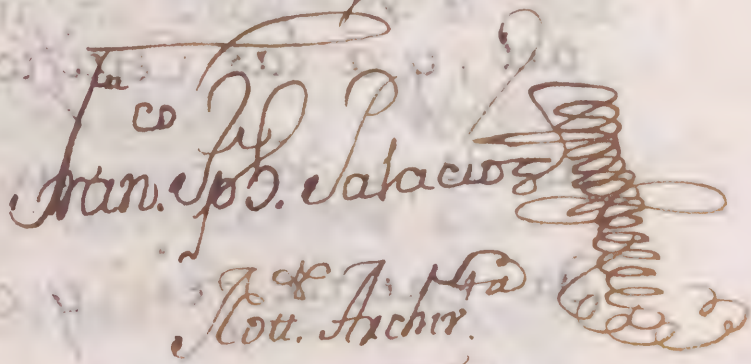 Fran.co Jph. Palacioz
Nott.o Archiv.sta